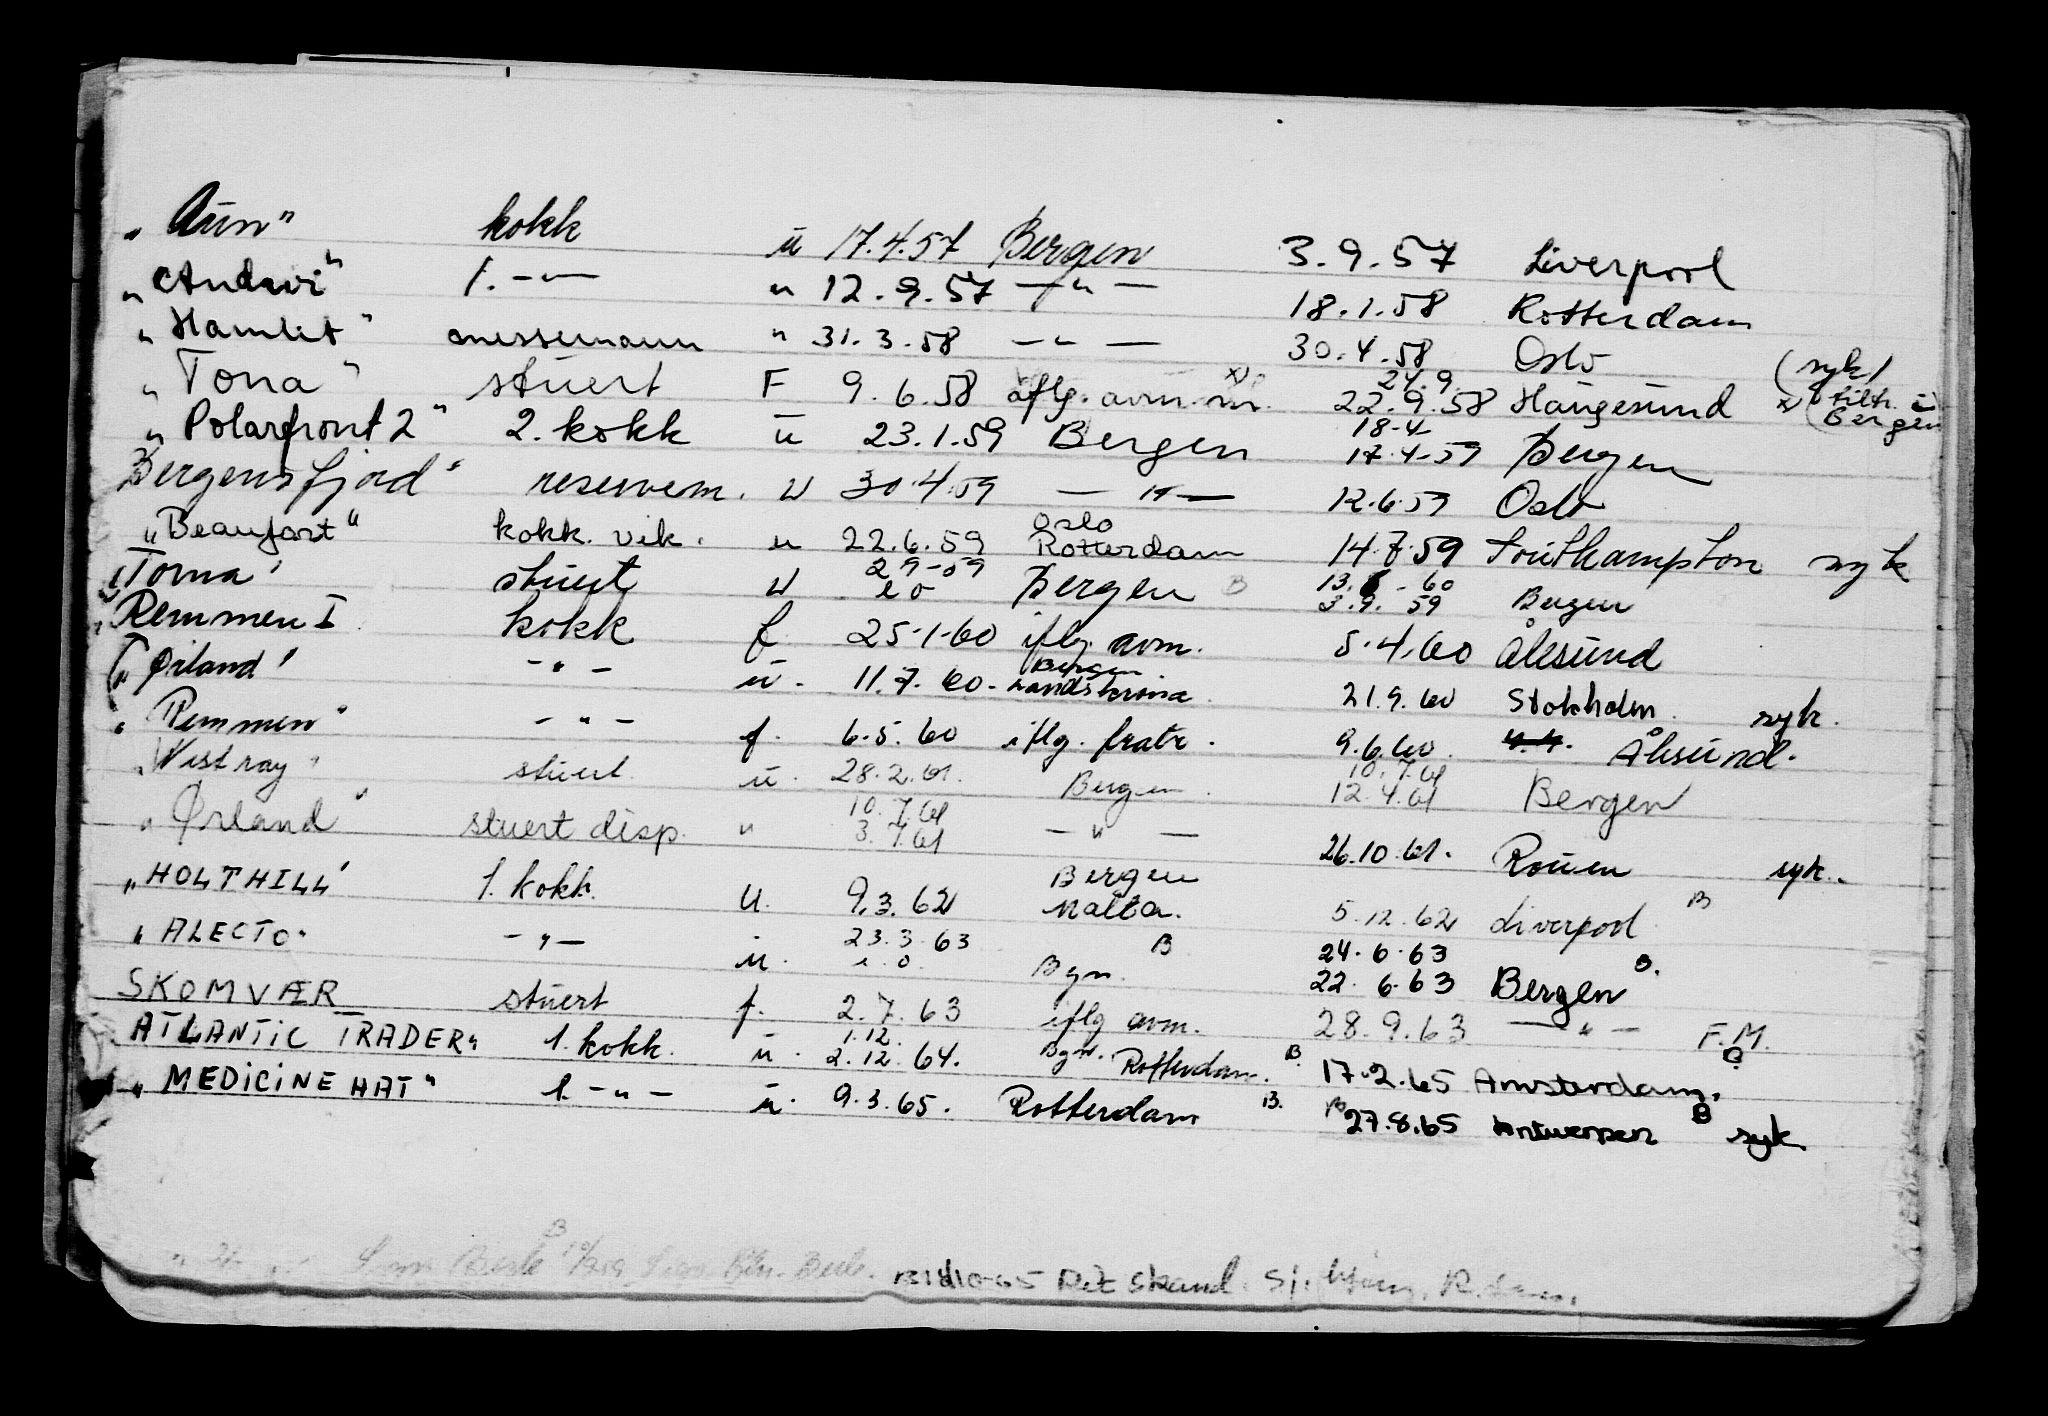 „Aun" kokk u 17.4.57 Bergen 3.9.57 Liverpool
„Andwi" 1. -"- " 12.9.57 -"- 18.1.58 Rotterdam
„Hamlet" messemann " 31.3.58 -"- 30.4.58 Oslo (syk)
„Tona" stuert F 9.6.58 iflg. avm. x) 24.9. 22.9.58 Haugesund x) (tiltr. i Bergen
„Polarfront 2" 2. kokk u 23.1.59 Bergen 18-4 17.4-59 Bergen
Bergensfjord" reservem. u 30.4.59 -"- 12.6.59 Oslo
„Beaufort" kokk. vik. u 22.6.59 Oslo Rotterdam 14.7.59 Southampton syk
„Torna" stuert u 29-59 Bergen B 60 3.9.59 Bergen
„Remmen I kokk f 25-1-60 iflg. avm. 5.4.60 Ålesund
„Ørland" -"- u. 11.7.60. Bergen Landskrona 21.9.60 Stokholm syk.
„Remmen" -"- f. 6.5.60 iflg. fratr. 9.6.60 Ålesund.
„Westray" stuert u. 28.2.61. Bergen. 10.7.61 12.4.61 Bergen
„Ørland" stuert disp. " 10.7.61 3.7.61 -"- 26.10.61. Rouen syk.
„HOLTHILL" 1. kokk. U. 9.3.62 Bergen Malta. 5.12.62 Liverpool B
„ALECTO" -"- u. 23.3.63 Bgn. B 24.6.63 22.6.63 Bergen B.
SKOMVÆR stuert f. 2.7.63 iflg avm. 28.9.63 -"- F.M.
ATLANTIC TRADER" 1. kokk. u. 1.12. 2.12.64. Bgn. Rotterdam. B 17.2.65 Amsterdam. B
„MEDICINE HAT" 1. -"- u. 9.3.65. Rotterdam B. 27.8.65 Antwerpen B syk.
Det Skand. Sj.